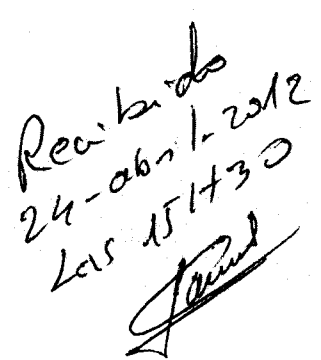 Recibido
24-abril-2012
Las 15H30